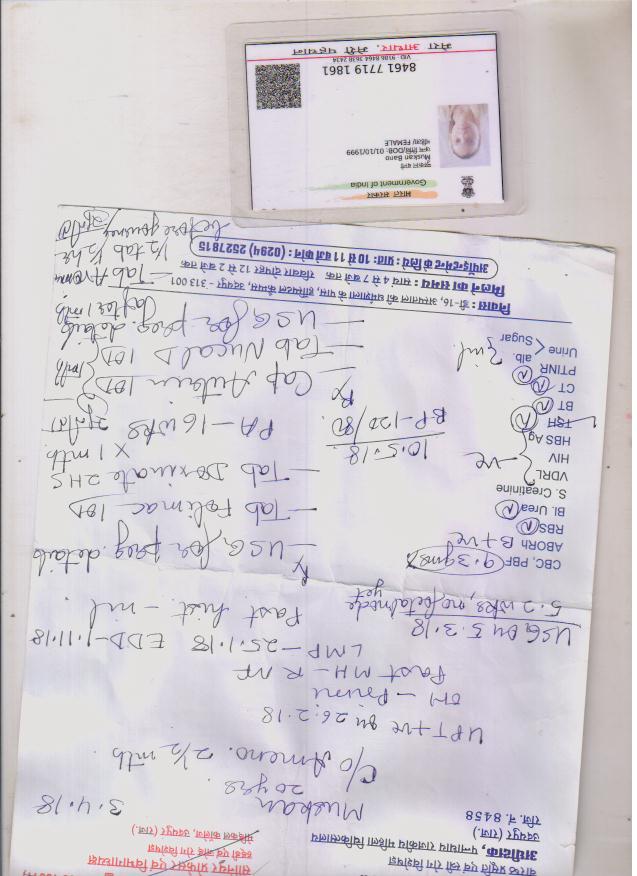 वरिष्ठ प्रसूति एवं स्त्री रोग विशेषज्ञ
अधीक्षक, पन्नाधाय राजकीय महिला चिकित्सालय
उदयपुर (राज.)
रजि. नं. 8458
सीनियर प्रोफेसर एवं विभागाध्यक्ष
मेडिकल कॉलेज, उदयपुर (राज.)
Muskan
20 yrs
3.4.18
C/o Ameno. 2 1/2 mth
UPT +ve on 26.2.18
OH - Primi
Past MH - R NF
LMP - 25.1.18 EDD - 1.11.18
Past hist. - nil
USG on 5.3.18
5.2 wks, no fetal node
yet
CBC, PBF 9.3 gms
ABORh B+ve
RBS N
Bl. Urea N
S. Creatinine
VDRL
HIV
HBS Ag
-ve
TSH N
BT
CT N
PTINR N
Urine < alb.
Sugar
nil
Rx
— USG for preg. details
— Tab Folimac 1OD
— Tab Doxinate 2HS
X 1 mth
10.5.18
BP - 120/80
PA - 16 wks
Rx
Cap Autrin 1OD
— Tab Nucal D 1OD
— USG for preg. details
(after 1 mth
— Tab Avomin
1/2 tab 1/2 hr
before journey
निवास : डी-16, अस्पताल की धर्मशाला के पास, हॉस्पिटल कैम्पस, उदयपुर - 313 001
मिलने का समय : सायं 4 से 7 बजे तक रविवार दोपहर 12 से 2 बजे तक
अपॉइन्टमेन्ट के लिये प्रातः 10 से 11 बजे फोन करें : (0294) 2527815
भारत सरकार
Government of India
मुस्कान बानो
Muskan Bano
जन्म तिथि/DOB: 01/10/1999
महिला/ FEMALE
8461 7719 1861
VID : 9186 8464 3638 2434
मेरा आधार, मेरी पहचान